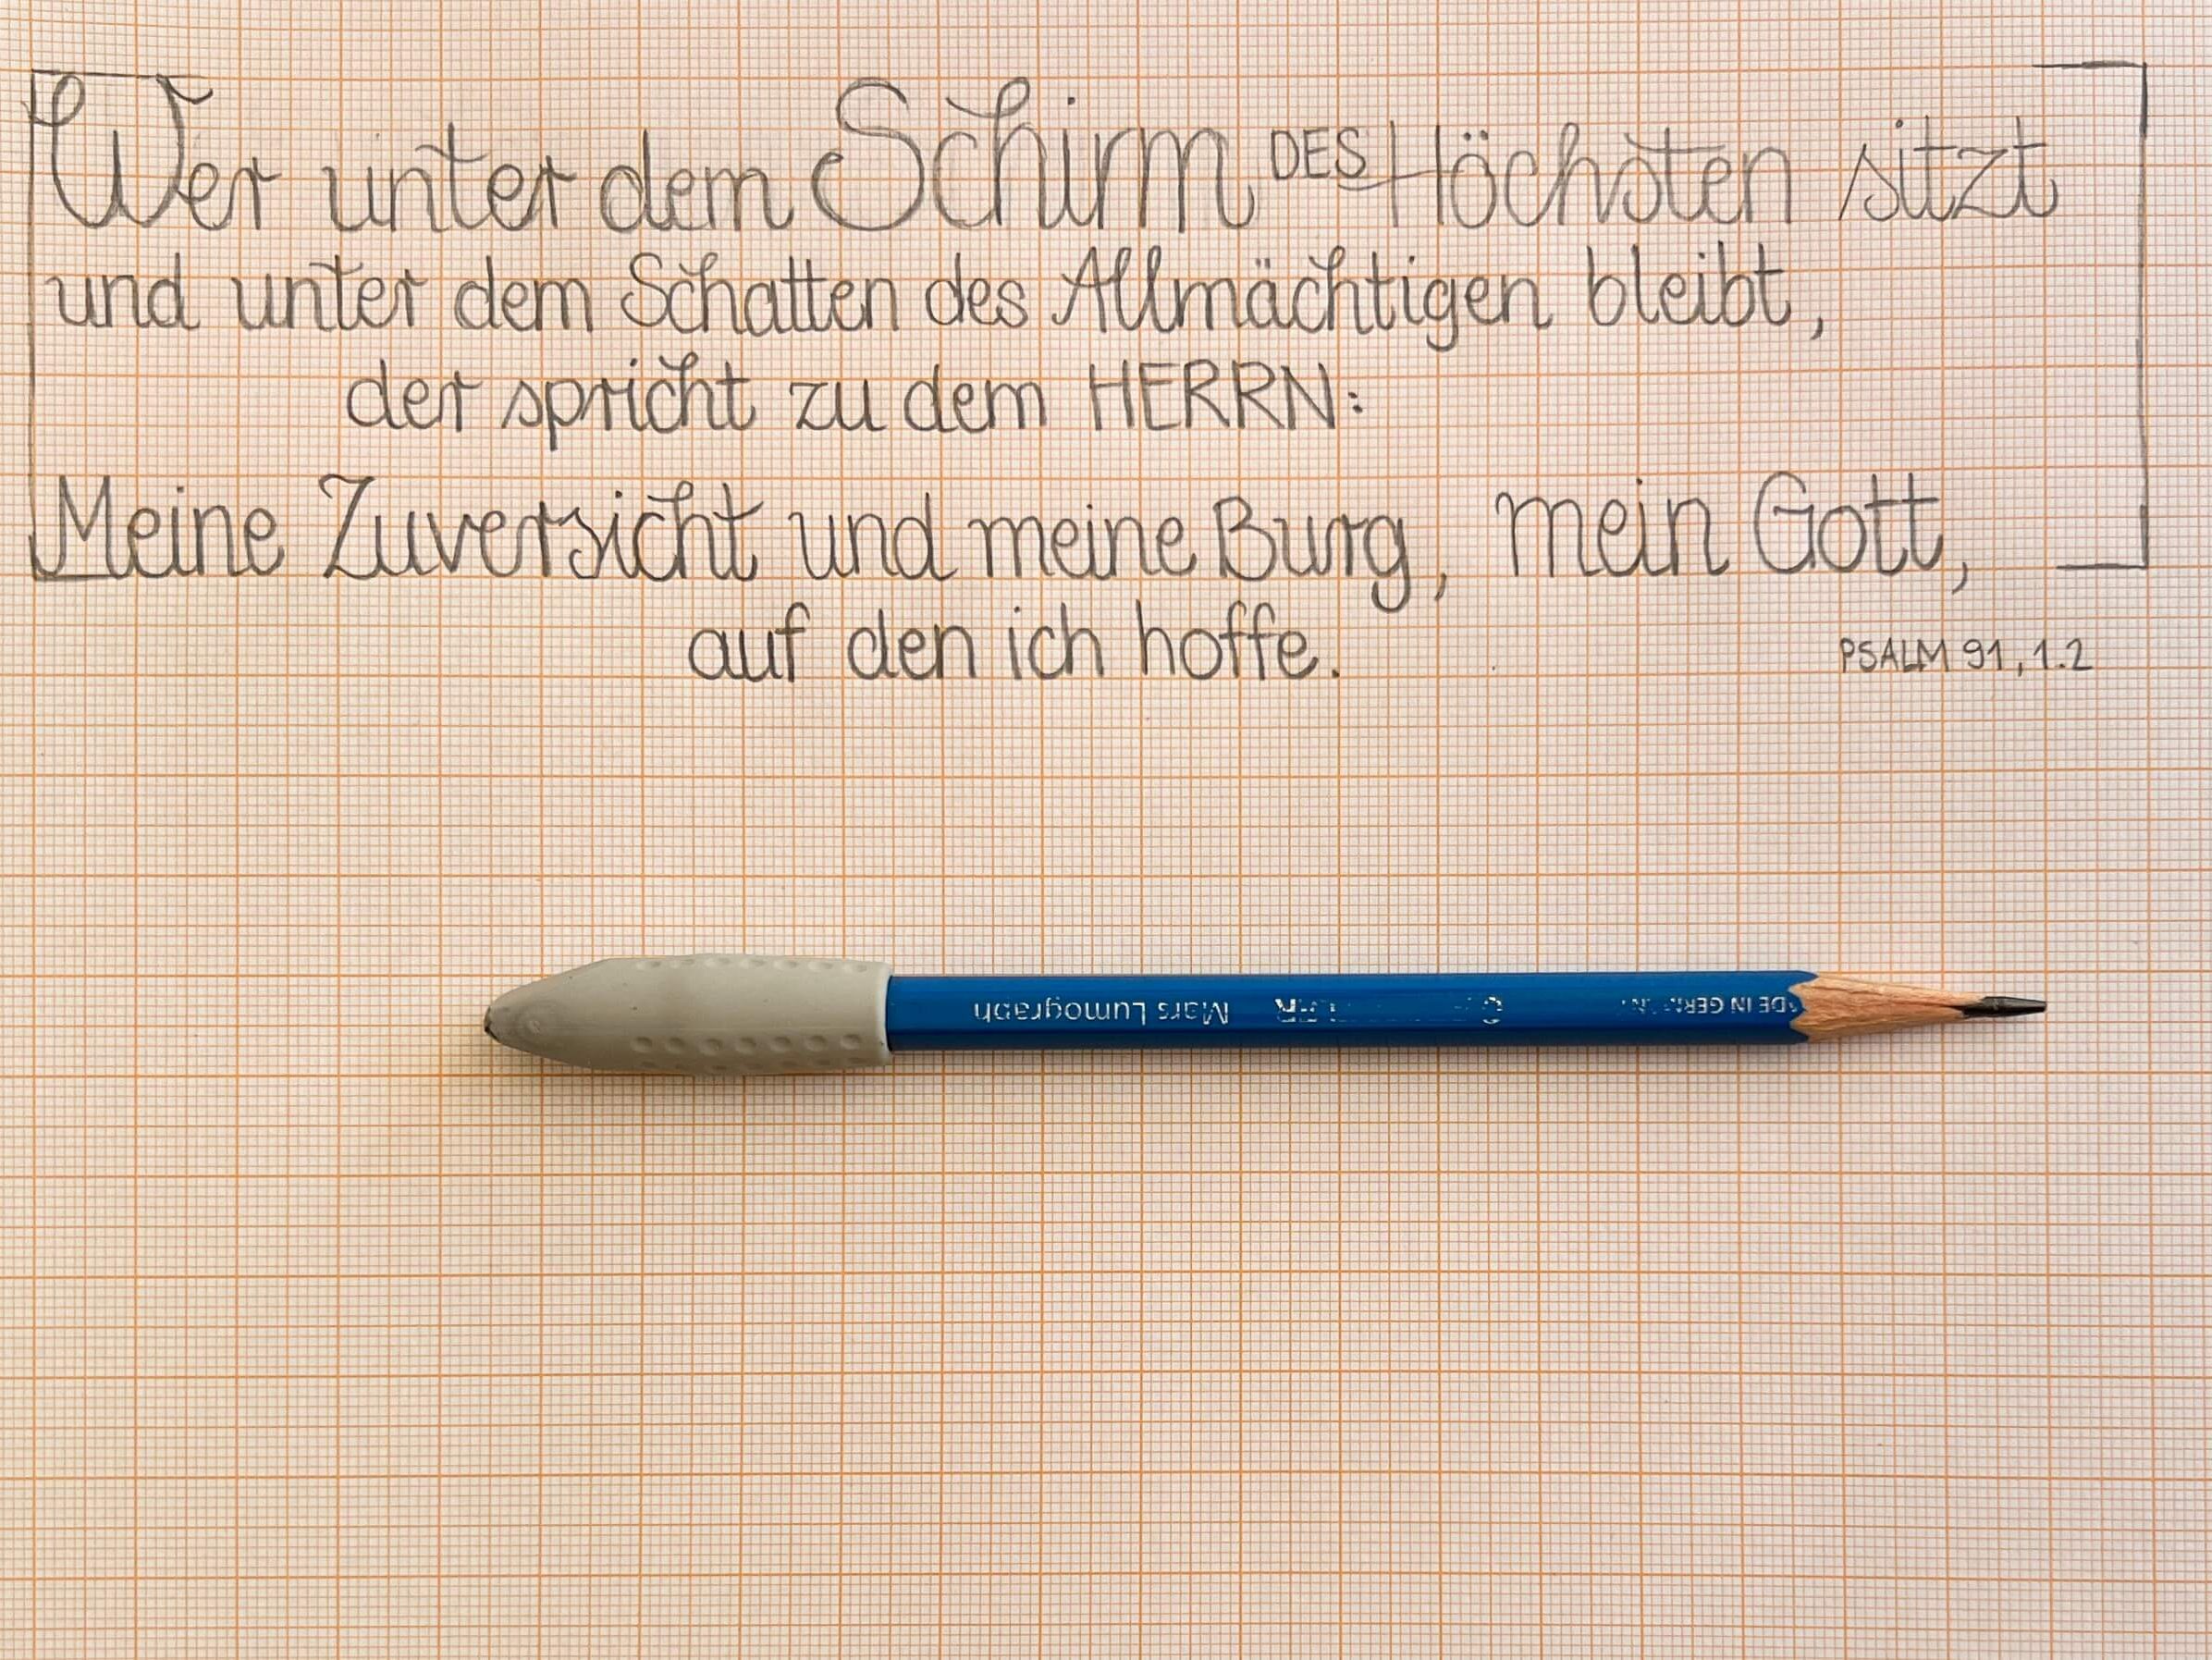 Wer unter dem Schirm DES Höchsten sitzt
und unter dem Schatten des Allmächtigen bleibt,
der spricht zu dem HERRN:
Meine Zuversicht und meine Burg, mein Gott,
auf den ich hoffe.
PSALM 91, 1.2
Mars Lumograph